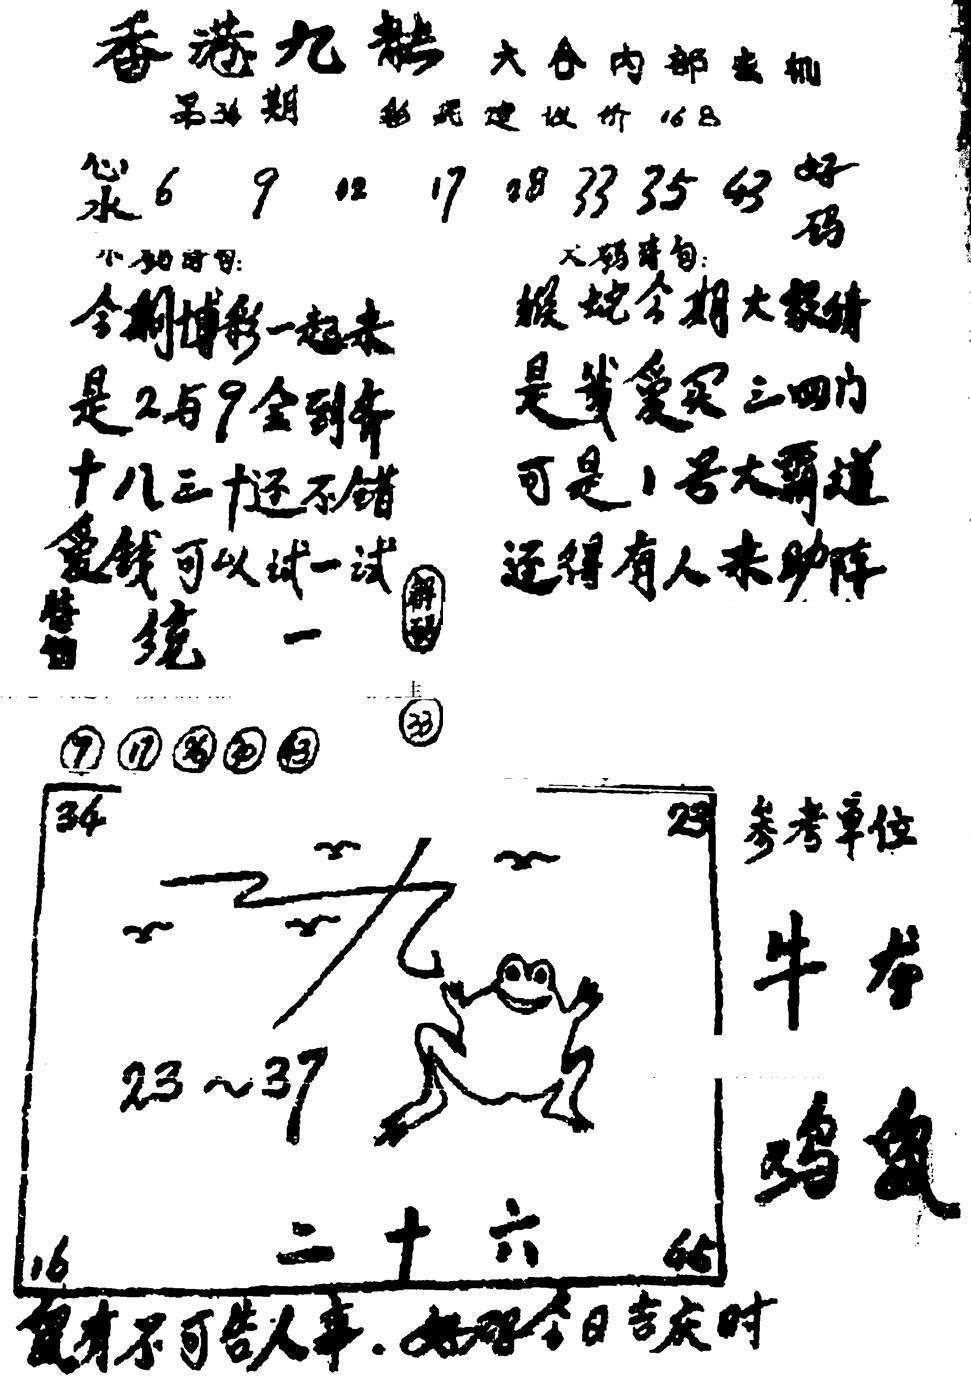 香港九龙 大会内部玄机
第36期 彩民建议价 168
心水 6 9 12 17 28 33 35 43 好码
小码诗句:
今期博彩一起来
是2与9全到齐
十八三十还不错
爱钱可以试一试
大码诗句:
猴蛇今期大家猜
是我爱买三四门
可是1号大霸道
还得有人来助阵
特 统一
解码
33
9 17 26 30 43
34 23
23～37
二十六
16 45
参考单位
牛 龙
鸡 鼠
鼠有不可告人事.好码今日吉庆时